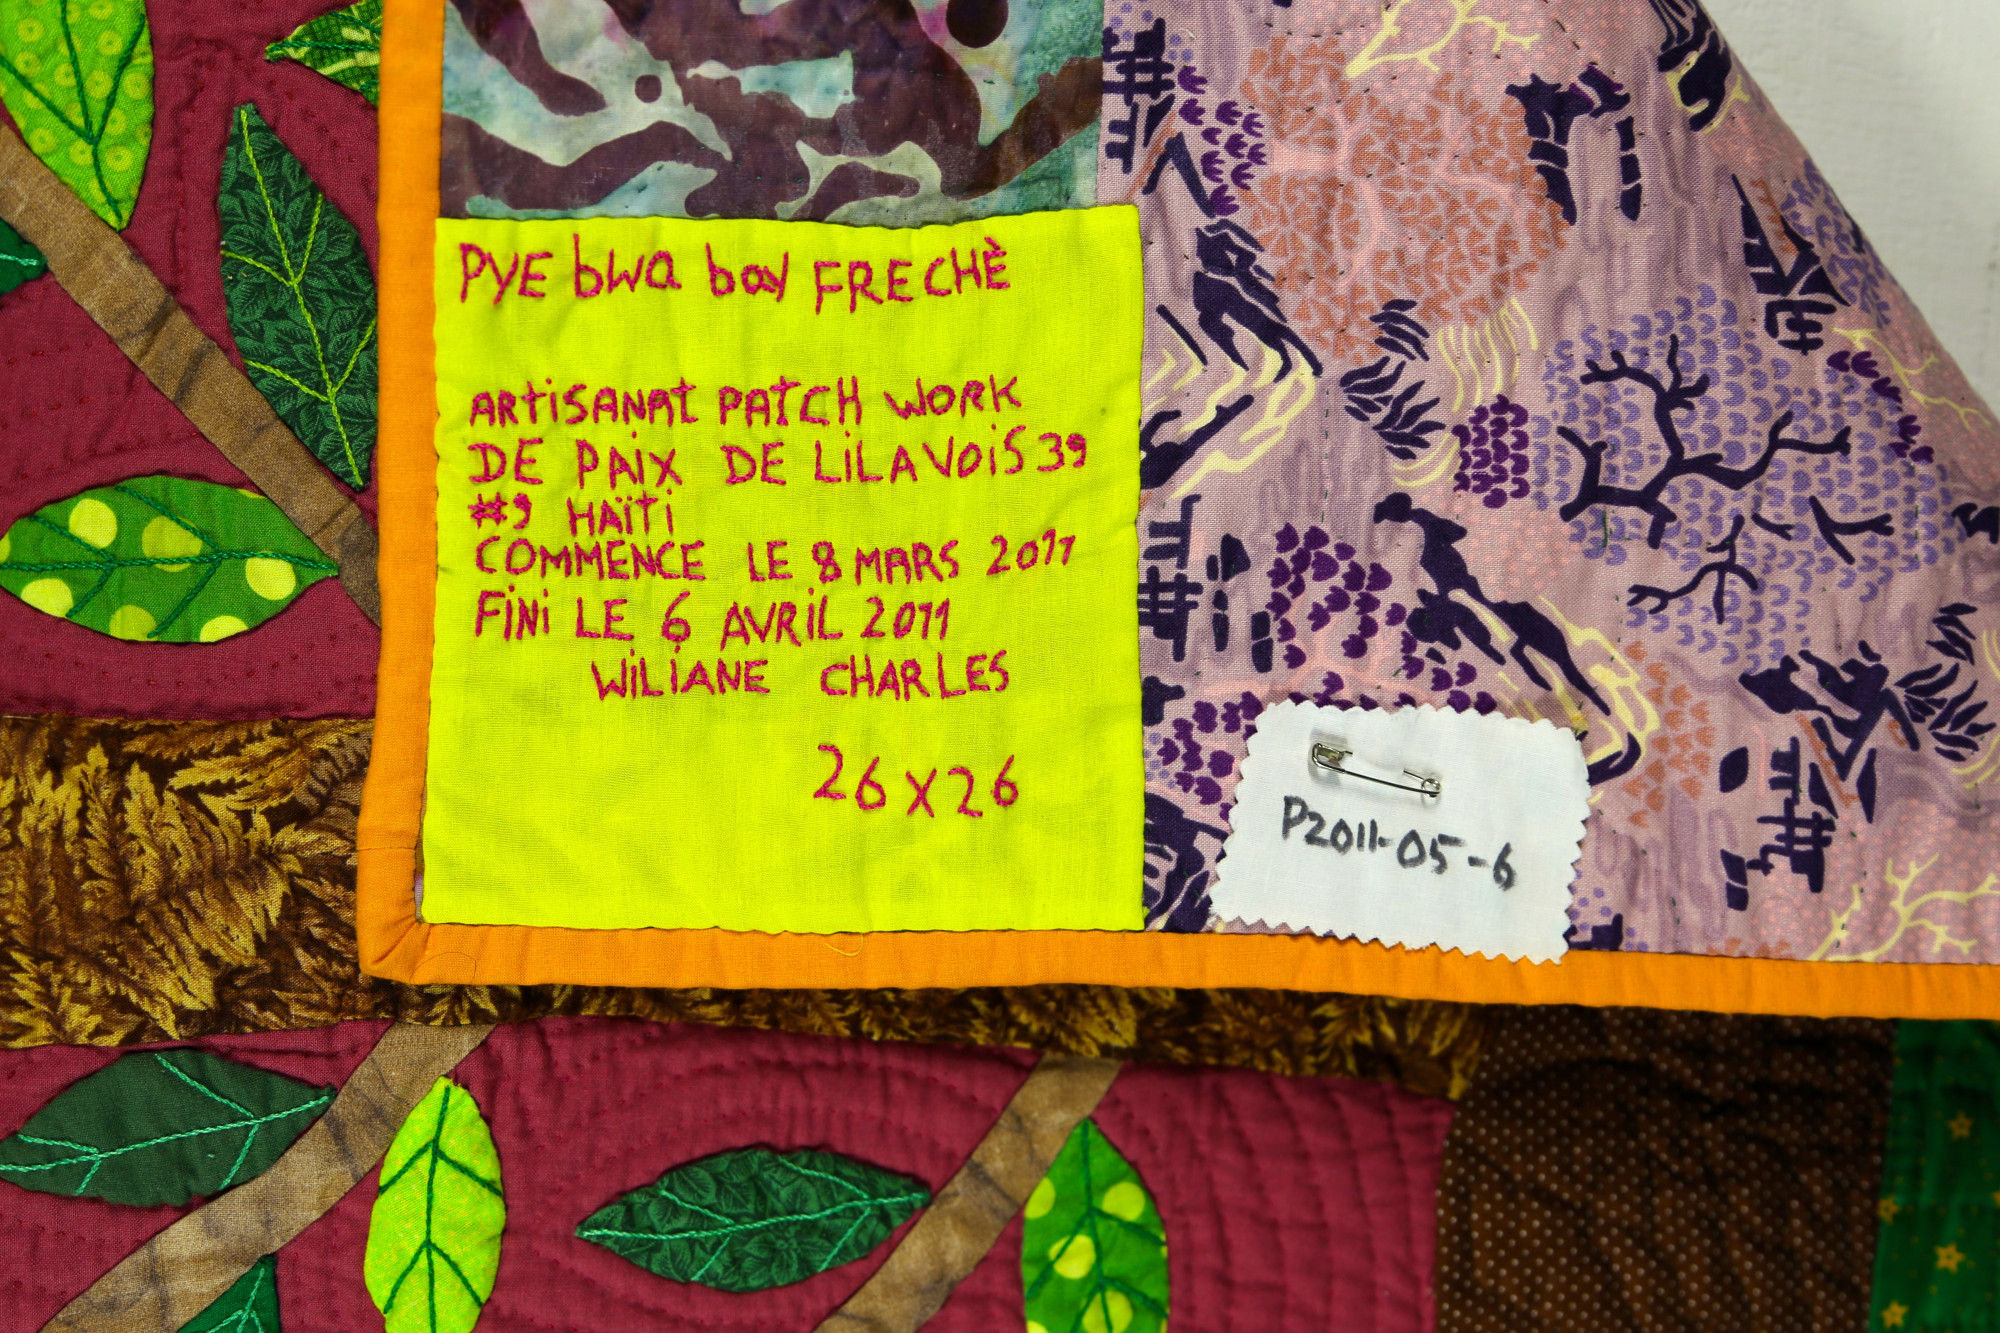 PYE bwa bay FRECHÈ
ARtiSANAt PATCH WORK
DE PAiX DE LiLAVOiS 39
#9 HAïti
COMMENCE LE 8 MARS 2011
FiNi LE 6 AVRiL 2011
WiLiANE CHARLES
26 x 26
P2011-05-6